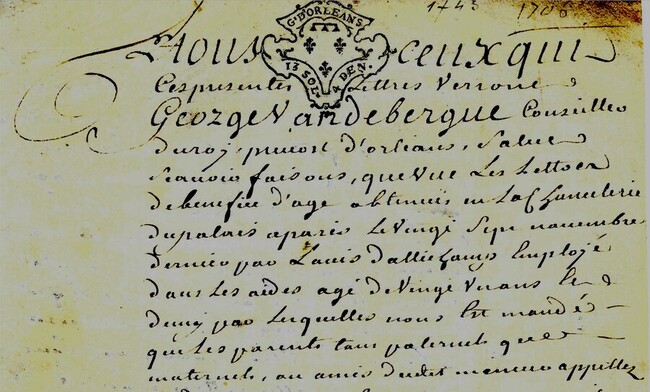 1743 1706
G^D'ORLEANS
13 SOL 4 DEN.
A tous ceux qui
Ces presentes Lettres Verront
George Vandebergue Conseiller
du roy, prevost d'orleans, Salut
Scavoir faisons, que Vue Les Lettres
de benefice d'age obtenües en La Chancelerie
du palais a paris Le Vingt Sept novembre
dernier par Louis Employé
dans Les aides agé de Vingt Un ans Et
demy par Lesquelles nous Est mandé
que Les parents tant paternels que
maternels, ou amis dudit mineur appellez